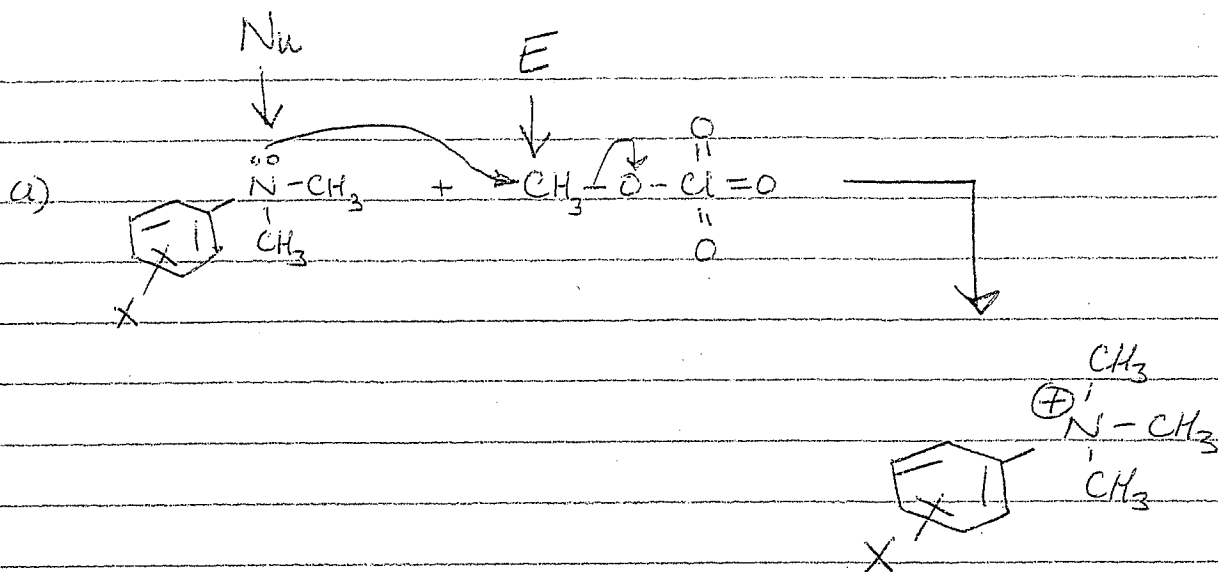 Nu
E
O
a) N-CH3 + CH3-O-Cl=O
CH3
O
X
CH3
+
N-CH3
CH3
X